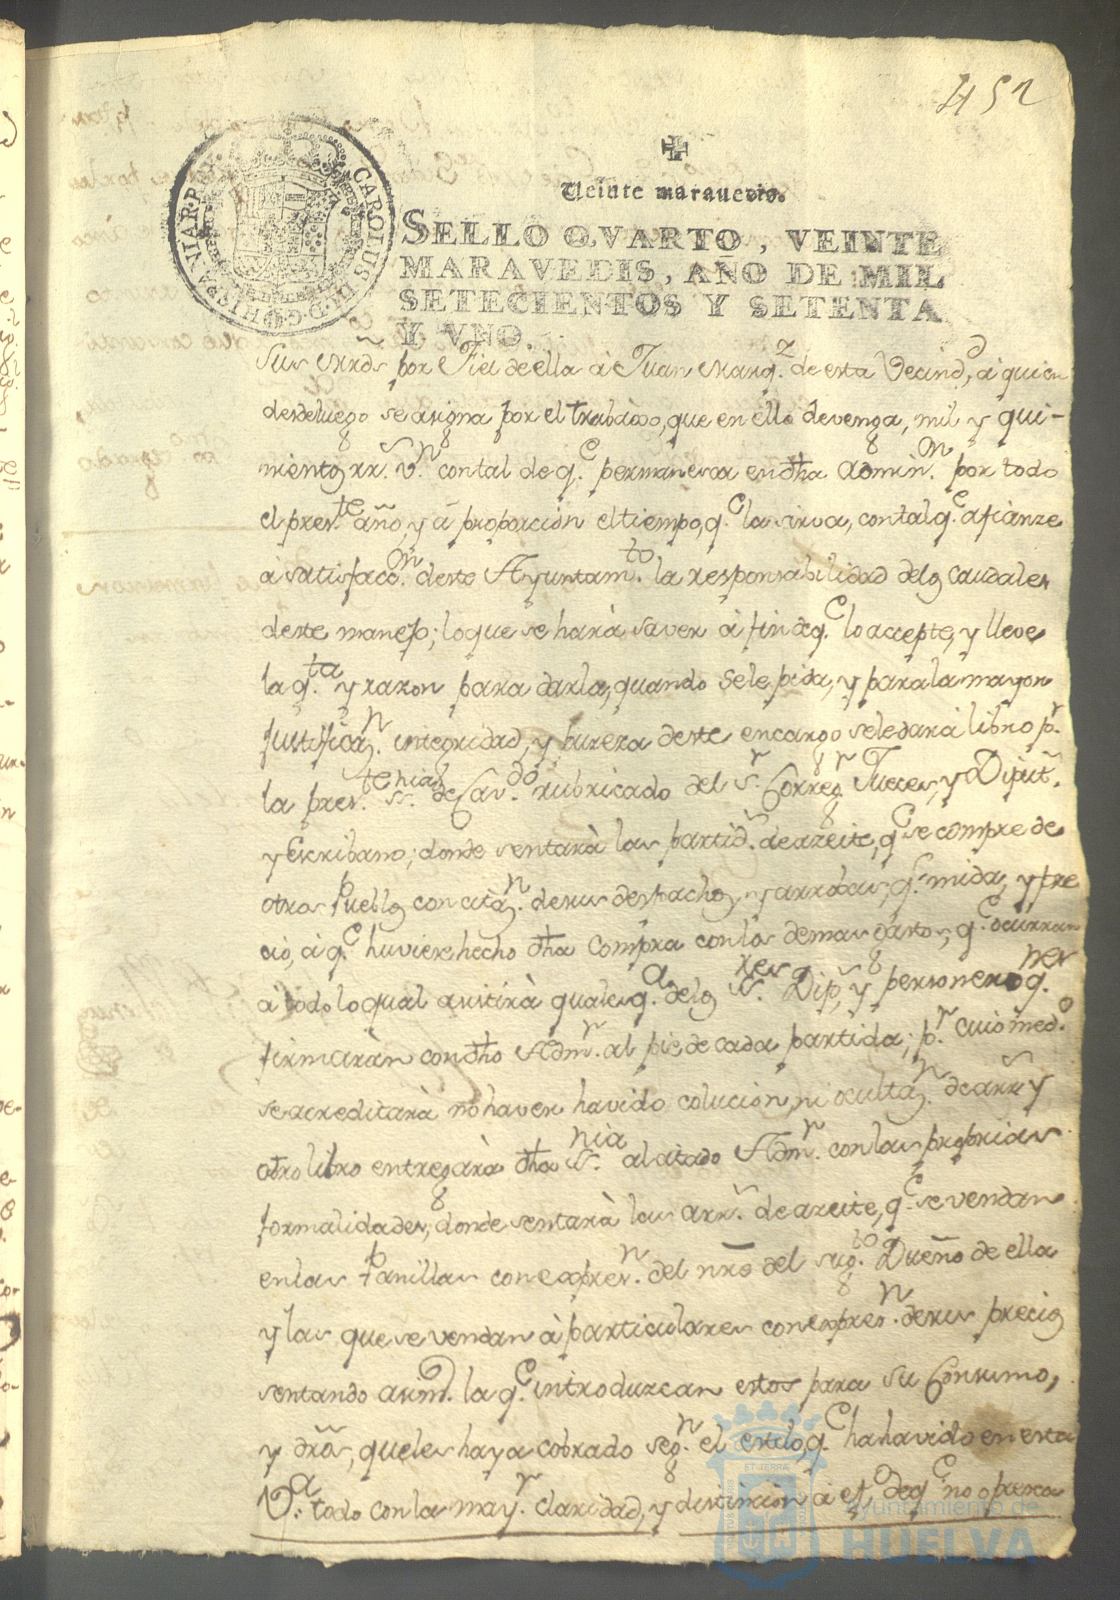 452
Veinte maravedis.
SELLO QVARTO, VEINTE
MARAVEDIS, AÑO DE MIL
SETECIENTOS Y SETENTA
Y VNO.
CAROLUS III D.G. HISPANIAR. REX
por Fiel de ella á Juan Marq.z de esta Vecind.d, á quien
desde luego se asigna por el trabajo, que en ello devenga, mil y qui-
nientos rr.s v.n con tal de q.e permanesca en dha Admin.on por todo
el pres.te año, y á proporcion el tiempo, q.e la sirva, con tal q.e afianze
á satisfacc.on deste Ayuntam.to la responsabilidad delos caudales
deste manejo; lo que se hará saver á fin de q.e lo accepte, y lleve
la q.ta y razon para darla, quando sele pida, y para la mayor
justificaz.n integridad, y pureza deste encargo seledará libro p.r
la pres.te ss.nia de Cav.do rubricado del s.r Correg.r Jueces, y Diput.s
y Escribano; donde sentará las partid.s de azeite, q.e se compre de
otros Pueblos con citaz.n desus despachos, y arrobas, q.e mida, y pre
cio, á q.e huviere hecho dha compra con los demas gastos, q.e ocurran
á todo lo qual asistirá qualesq.a delos ss.res Dip.s, y personeros q.nes
firmarán con dho Adm.r al pie de cada partida; p.r cuio med.o
se acreditará no haver havido colucion, ni ocultaz.n de arr.s y
otro libro entregará dha ss.nia al citado Adm.r con las proprias
formalidades; donde sentará las arr.s de azeite, q.e se vendan
enlas Panillas con expres.n del nro del sug.to Dueño de ella
y las que se vendan á particulares con expres.n desus precios
sentando asim.o la q.e introduzcan estos para su Consumo,
y dros, queles haya cobrado seg.n el estilo, q.e ha havido en esta
V.a todo con la may.r claridad, y distincion á ef.o de q.e no ofrezca
Ayuntamiento de
HUELVA